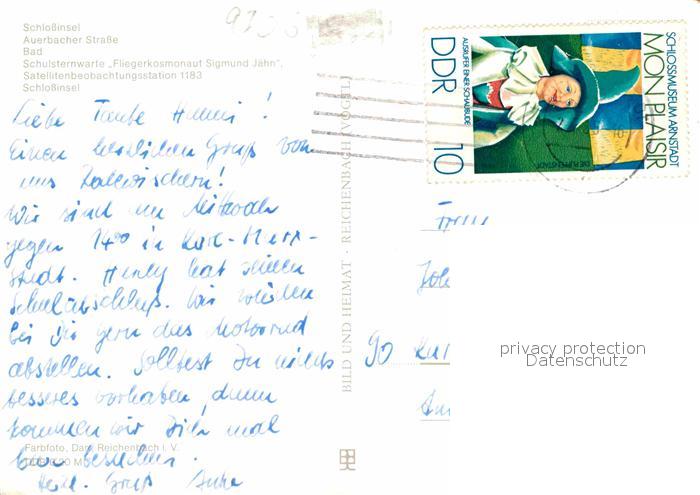 Schloßinsel
Auerbacher Straße
Bad
Schulsternwarte „Fliegerkosmonaut Sigmund Jähn“,
Satellitenbeobachtungsstation 1183
Schloßinsel
Liebe Tante Hanni!
Einen herzlichen Gruß von
uns
Wir sind am Mittwoch
gegen 14⁰⁰ in Karl-Marx-
Stadt. hat seinen
Schulabschluß. Wir würden
bei Dir gern das Motorrad
abstellen. Solltest Du nichts
besseres vorhaben, dann
kommen wir Dich mal
besuchen.
Herzl. Gruß Anke
Farbfoto, Darr, Reichenbach i. V.
BILD UND HEIMAT · REICHENBACH (VOGTL)
SCHLOSSMUSEUM ARNSTADT
MON PLAISIR
DIE PUPPENSTADT
AUSRUFER EINER SCHAUBUDE
DDR 10
90
privacy protection
Datenschutz